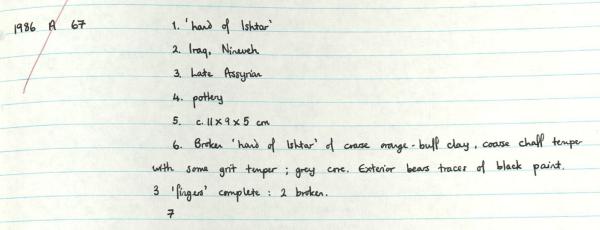 1986 A 67 1. 'hand of Ishtar'
2. Iraq, Nineveh
3. Late Assyrian
4. pottery
5. c. 11 x 9 x 5 cm
6. Broken 'hand of Ishtar' of coarse orange-buff clay, coarse chaff temper
with some grit temper; grey core. Exterior bears traces of black paint.
3 'fingers' complete: 2 broken.
7